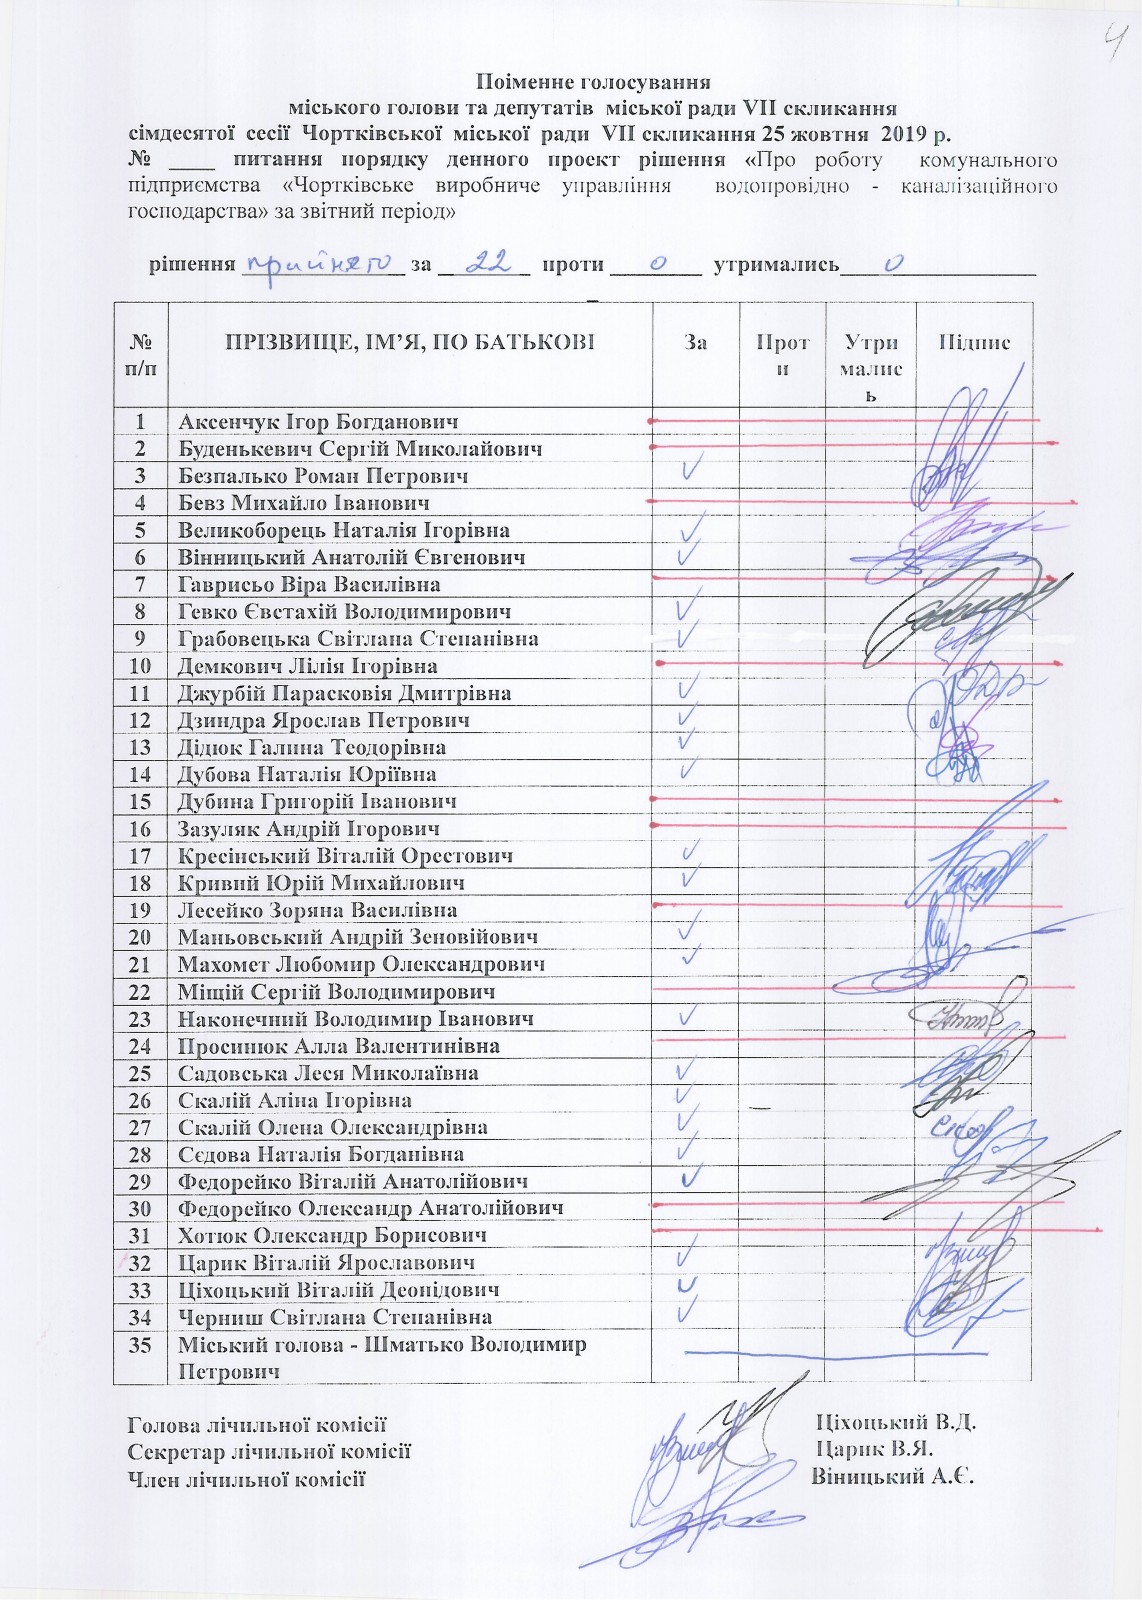 4
Поіменне голосування
міського голови та депутатів міської ради VII скликання
сімдесятої сесії Чортківської міської ради VII скликання 25 жовтня 2019 р.
№ ____ питання порядку денного проект рішення «Про роботу комунального
підприємства «Чортківське виробниче управління водопровідно - каналізаційного
господарства» за звітний період»
рішення прийнято за 22 проти 0 утримались 0
№ п/п ПРІЗВИЩЕ, ІМ’Я, ПО БАТЬКОВІ За Проти Утрималися Підпис
1 Аксенчук Ігор Богданович
2 Буденькевич Сергій Миколайович
3 Безпалько Роман Петрович ✓
4 Бевз Михайло Іванович
5 Великоборець Наталія Ігорівна ✓
6 Вінницький Анатолій Євгенович ✓
7 Гаврисьо Віра Василівна
8 Гевко Євстахій Володимирович ✓
9 Грабовецька Світлана Степанівна ✓
10 Демкович Лілія Ігорівна
11 Джурбій Парасковія Дмитрівна ✓
12 Дзиндра Ярослав Петрович ✓
13 Дідюк Галина Теодорівна ✓
14 Дубова Наталія Юріївна ✓
15 Дубина Григорій Іванович
16 Зазуляк Андрій Ігорович
17 Кресінський Віталій Орестович ✓
18 Кривий Юрій Михайлович ✓
19 Лесейко Зоряна Василівна
20 Маньовський Андрій Зеновійович ✓
21 Махомет Любомир Олександрович ✓
22 Міщій Сергій Володимирович
23 Наконечний Володимир Іванович ✓
24 Просинюк Алла Валентинівна
25 Садовська Леся Миколаївна ✓
26 Скалій Аліна Ігорівна ✓
27 Скалій Олена Олександрівна ✓
28 Сєдова Наталія Богданівна ✓
29 Федорейко Віталій Анатолійович ✓
30 Федорейко Олександр Анатолійович
31 Хотюк Олександр Борисович
32 Царик Віталій Ярославович ✓
33 Ціхоцький Віталій Деонідович ✓
34 Черниш Світлана Степанівна ✓
35 Міський голова - Шматько Володимир
Петрович
Голова лічильної комісії Ціхоцький В.Д.
Секретар лічильної комісії Царик В.Я.
Член лічильної комісії Віницький А.Є.